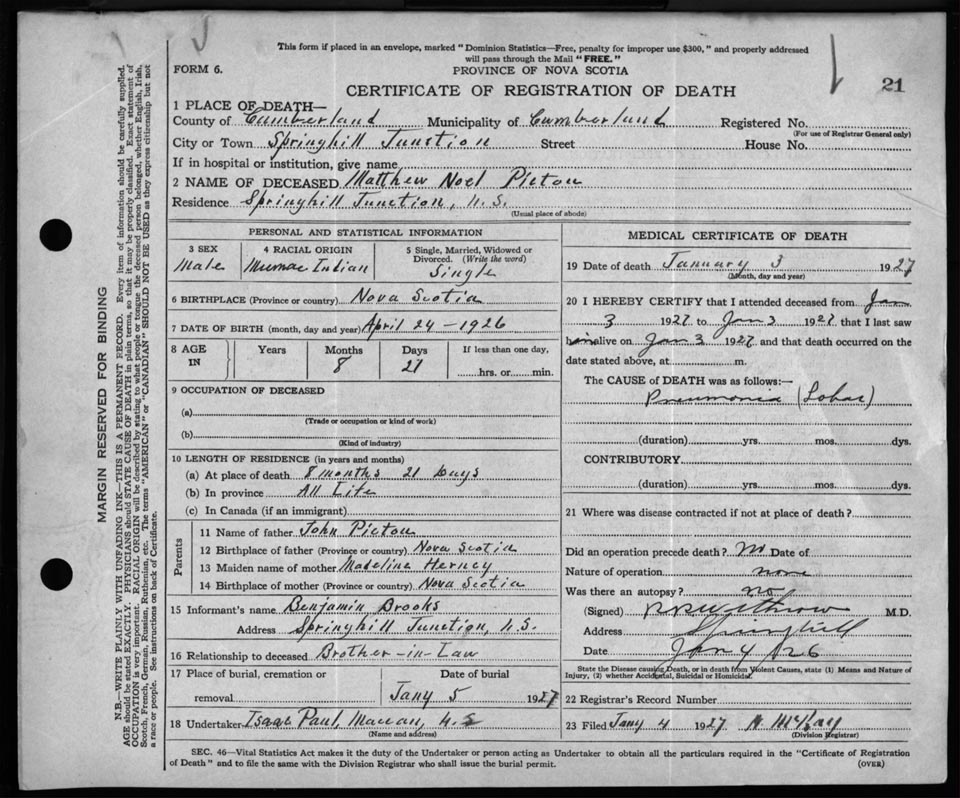 This form if placed in an envelope, marked "Dominion Statistics—Free, penalty for improper use $300," and properly addressed
will pass through the Mail "FREE."
FORM 6.
PROVINCE OF NOVA SCOTIA
21
CERTIFICATE OF REGISTRATION OF DEATH
1 PLACE OF DEATH—
County of Cumberland Municipality of Cumberland Registered No.
(For use of Registrar General only)
City or Town Springhill Junction Street House No.
If in hospital or institution, give name
2 NAME OF DECEASED Matthew Noel Picton
Residence Springhill Junction, N.S.
(Usual place of abode)
PERSONAL AND STATISTICAL INFORMATION
3 SEX
Male
4 RACIAL ORIGIN
Micmac Indian
5 Single, Married, Widowed or
Divorced. (Write the word)
Single
6 BIRTHPLACE (Province or country) Nova Scotia
7 DATE OF BIRTH (month, day and year) April 24 - 1926
8 AGE
IN
Years
Months
8
Days
21
If less than one day,
hrs. or min.
9 OCCUPATION OF DECEASED
(a)
(Trade or occupation or kind of work)
(b)
(Kind of industry)
10 LENGTH OF RESIDENCE (in years and months)
(a) At place of death 8 months 21 Days
(b) In province All Life
(c) In Canada (if an immigrant)
Parents
11 Name of father John Picton
12 Birthplace of father (Province or country) Nova Scotia
13 Maiden name of mother Madeline Herney
14 Birthplace of mother (Province or country) Nova Scotia
15 Informant's name Benjamin Brooks
Address Springhill Junction, N.S.
16 Relationship to deceased Brother-in-Law
17 Place of burial, cremation or
removal
Date of burial
Jany 5 1927
18 Undertaker Isaac Paul, Maccan, N.S
(Name and address)
MEDICAL CERTIFICATE OF DEATH
19 Date of death January 3 1927
(Month, day and year)
20 I HEREBY CERTIFY that I attended deceased from Jan
3 1927 to Jan 3 1927 that I last saw
him alive on Jan 3 1927 and that death occurred on the
date stated above, at m.
The CAUSE OF DEATH was as follows:—
Pneumonia (Lobar)
(duration) yrs. mos. dys.
CONTRIBUTORY
(duration) yrs. mos. dys.
21 Where was disease contracted if not at place of death?
Did an operation precede death? No Date of
Nature of operation none
Was there an autopsy? no
(Signed) M.D.
Address Springhill
Date Jan 4 1926
State the Disease causing Death, or in death from Violent Causes, state (1) Means and Nature of
Injury, (2) whether Accidental, Suicidal or Homicidal.
22 Registrar's Record Number
23 Filed Jany 4 1927
(Division Registrar)
SEC. 46—Vital Statistics Act makes it the duty of the Undertaker or person acting as Undertaker to obtain all the particulars required in the "Certificate of Registration
of Death" and to file the same with the Division Registrar who shall issue the burial permit.
(OVER)
MARGIN RESERVED FOR BINDING
N.B.—WRITE PLAINLY WITH UNFADING INK—THIS IS A PERMANENT RECORD. Every item of information should be carefully supplied.
AGE should be stated EXACTLY. PHYSICIANS should STATE CAUSE OF DEATH in plain terms, so that it may be properly classified. Exact statement of
OCCUPATION is very important. RACIAL ORIGIN will be described by stating to what people or tongue the deceased person belonged, whether English, Irish,
Scotch, French, German, Russian, Ruthenian, etc. The terms "AMERICAN" or "CANADIAN" SHOULD NOT BE USED as they express citizenship but not
a race or people. See instructions on back of Certificate.